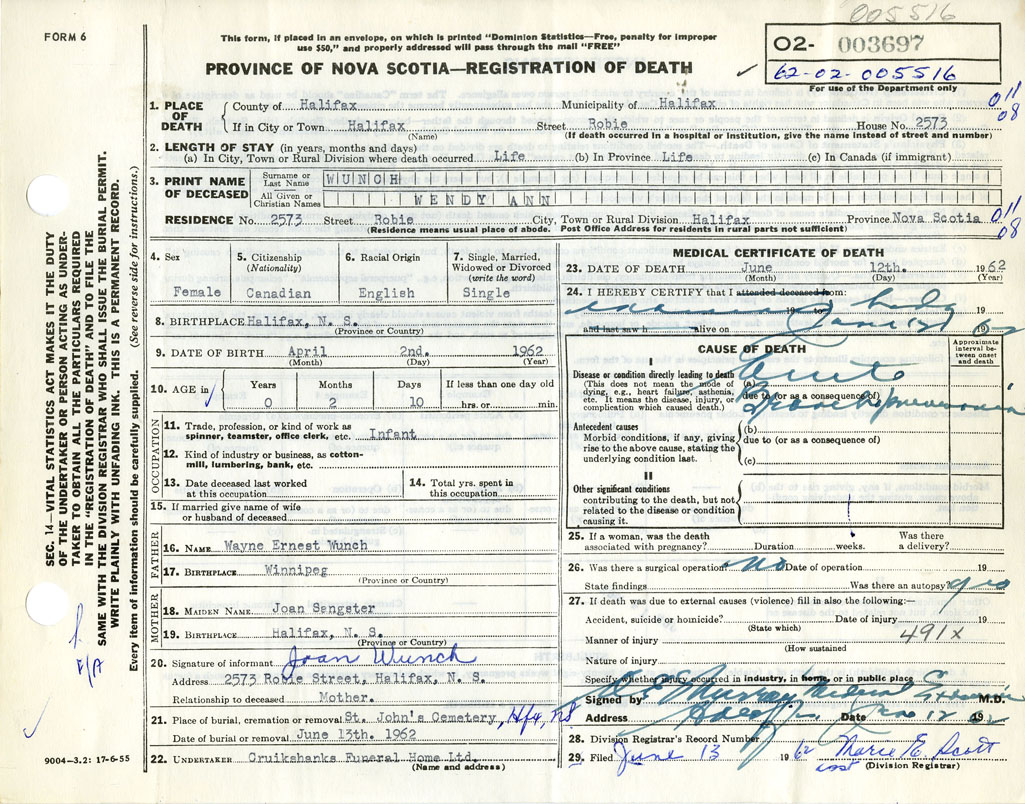 005516
FORM 6
This form, if placed in an envelope, on which is printed "Dominion Statistics—Free, penalty for improper
use $50," and properly addressed will pass through the mail "FREE"
PROVINCE OF NOVA SCOTIA—REGISTRATION OF DEATH
O2- 003697
62-02-005516
For use of the Department only
1. PLACE OF DEATH
County of Halifax Municipality of Halifax
011
08
If in City or Town Halifax Street Robie House No. 2573
(Name) (If death occurred in a hospital or institution, give the name instead of street and number)
2. LENGTH OF STAY (in years, months and days)
(a) In City, Town or Rural Division where death occurred Life (b) In Province Life (c) In Canada (if immigrant)
3. PRINT NAME OF DECEASED
Surname or Last Name WUNCH
All Given or Christian Names WENDY ANN
RESIDENCE No. 2573 Street Robie City, Town or Rural Division Halifax Province Nova Scotia
011
08
(Residence means usual place of abode. Post Office Address for residents in rural parts not sufficient)
4. Sex
Female
5. Citizenship
(Nationality)
Canadian
6. Racial Origin
English
7. Single, Married,
Widowed or Divorced
(write the word)
Single
8. BIRTHPLACE Halifax, N. S.
(Province or Country)
9. DATE OF BIRTH April 2nd. 1962
(Month) (Day) (Year)
10. AGE in
Years Months Days If less than one day old
0 2 10 hrs. or min.
OCCUPATION
11. Trade, profession, or kind of work as
spinner, teamster, office clerk, etc. Infant
12. Kind of industry or business, as cotton-
mill, lumbering, bank, etc.
13. Date deceased last worked
at this occupation
14. Total yrs. spent in
this occupation
15. If married give name of wife
or husband of deceased
FATHER
16. NAME Wayne Ernest Wunch
17. BIRTHPLACE Winnipeg
(Province or Country)
MOTHER
18. MAIDEN NAME Joan Sangster
19. BIRTHPLACE Halifax, N. S.
(Province or Country)
20. Signature of informant Joan Wunch
Address 2573 Robie Street, Halifax, N. S.
Relationship to deceased Mother.
21. Place of burial, cremation or removal St. John's Cemetery, Hfx, NS
Date of burial or removal June 13th. 1962
22. UNDERTAKER Cruikshanks Funeral Home Ltd.
(Name and address)
MEDICAL CERTIFICATE OF DEATH
23. DATE OF DEATH June 12th. 1962
(Month) (Day) (Year)
24. I HEREBY CERTIFY that I attended deceased from:
body
19 to 19
and last saw h alive on June 12 19
CAUSE OF DEATH
Approximate
interval be-
tween onset
and death
I
Disease or condition directly leading to death
(This does not mean the mode of
dying, e.g., heart failure, asthenia,
etc. It means the disease, injury, or
complication which caused death.)
(a) Acute
due to (or as a consequence of)
Bronchopneumonia
Antecedent causes
Morbid conditions, if any, giving
rise to the above cause, stating the
underlying condition last.
(b)
due to (or as a consequence of)
(c)
II
Other significant conditions
contributing to the death, but not
related to the disease or condition
causing it.
25. If a woman, was the death
associated with pregnancy? Duration weeks. Was there
a delivery?
26. Was there a surgical operation? no Date of operation 19
State findings Was there an autopsy? yes
27. If death was due to external causes (violence) fill in also the following:—
Accident, suicide or homicide? Date of injury 19
(State which)
491x
Manner of injury
(How sustained
Nature of injury
Specify whether injury occurred in industry, in home, or in public place
Signed by Murray Medical M.D.
Address Halifax Date June 12 1962
28. Division Registrar's Record Number
29. Filed June 13 1962 Marie E. Scott
(Division Registrar)
SEC. 14—VITAL STATISTICS ACT MAKES IT THE DUTY
OF THE UNDERTAKER OR PERSON ACTING AS UNDER-
TAKER TO OBTAIN ALL THE PARTICULARS REQUIRED
IN THE "REGISTRATION OF DEATH" AND TO FILE THE
SAME WITH THE DIVISION REGISTRAR WHO SHALL ISSUE THE BURIAL PERMIT.
WRITE PLAINLY WITH UNFADING INK. THIS IS A PERMANENT RECORD.
Every item of information should be carefully supplied. (See reverse side for instructions.)
F/A
9004—3.2: 17-6-55